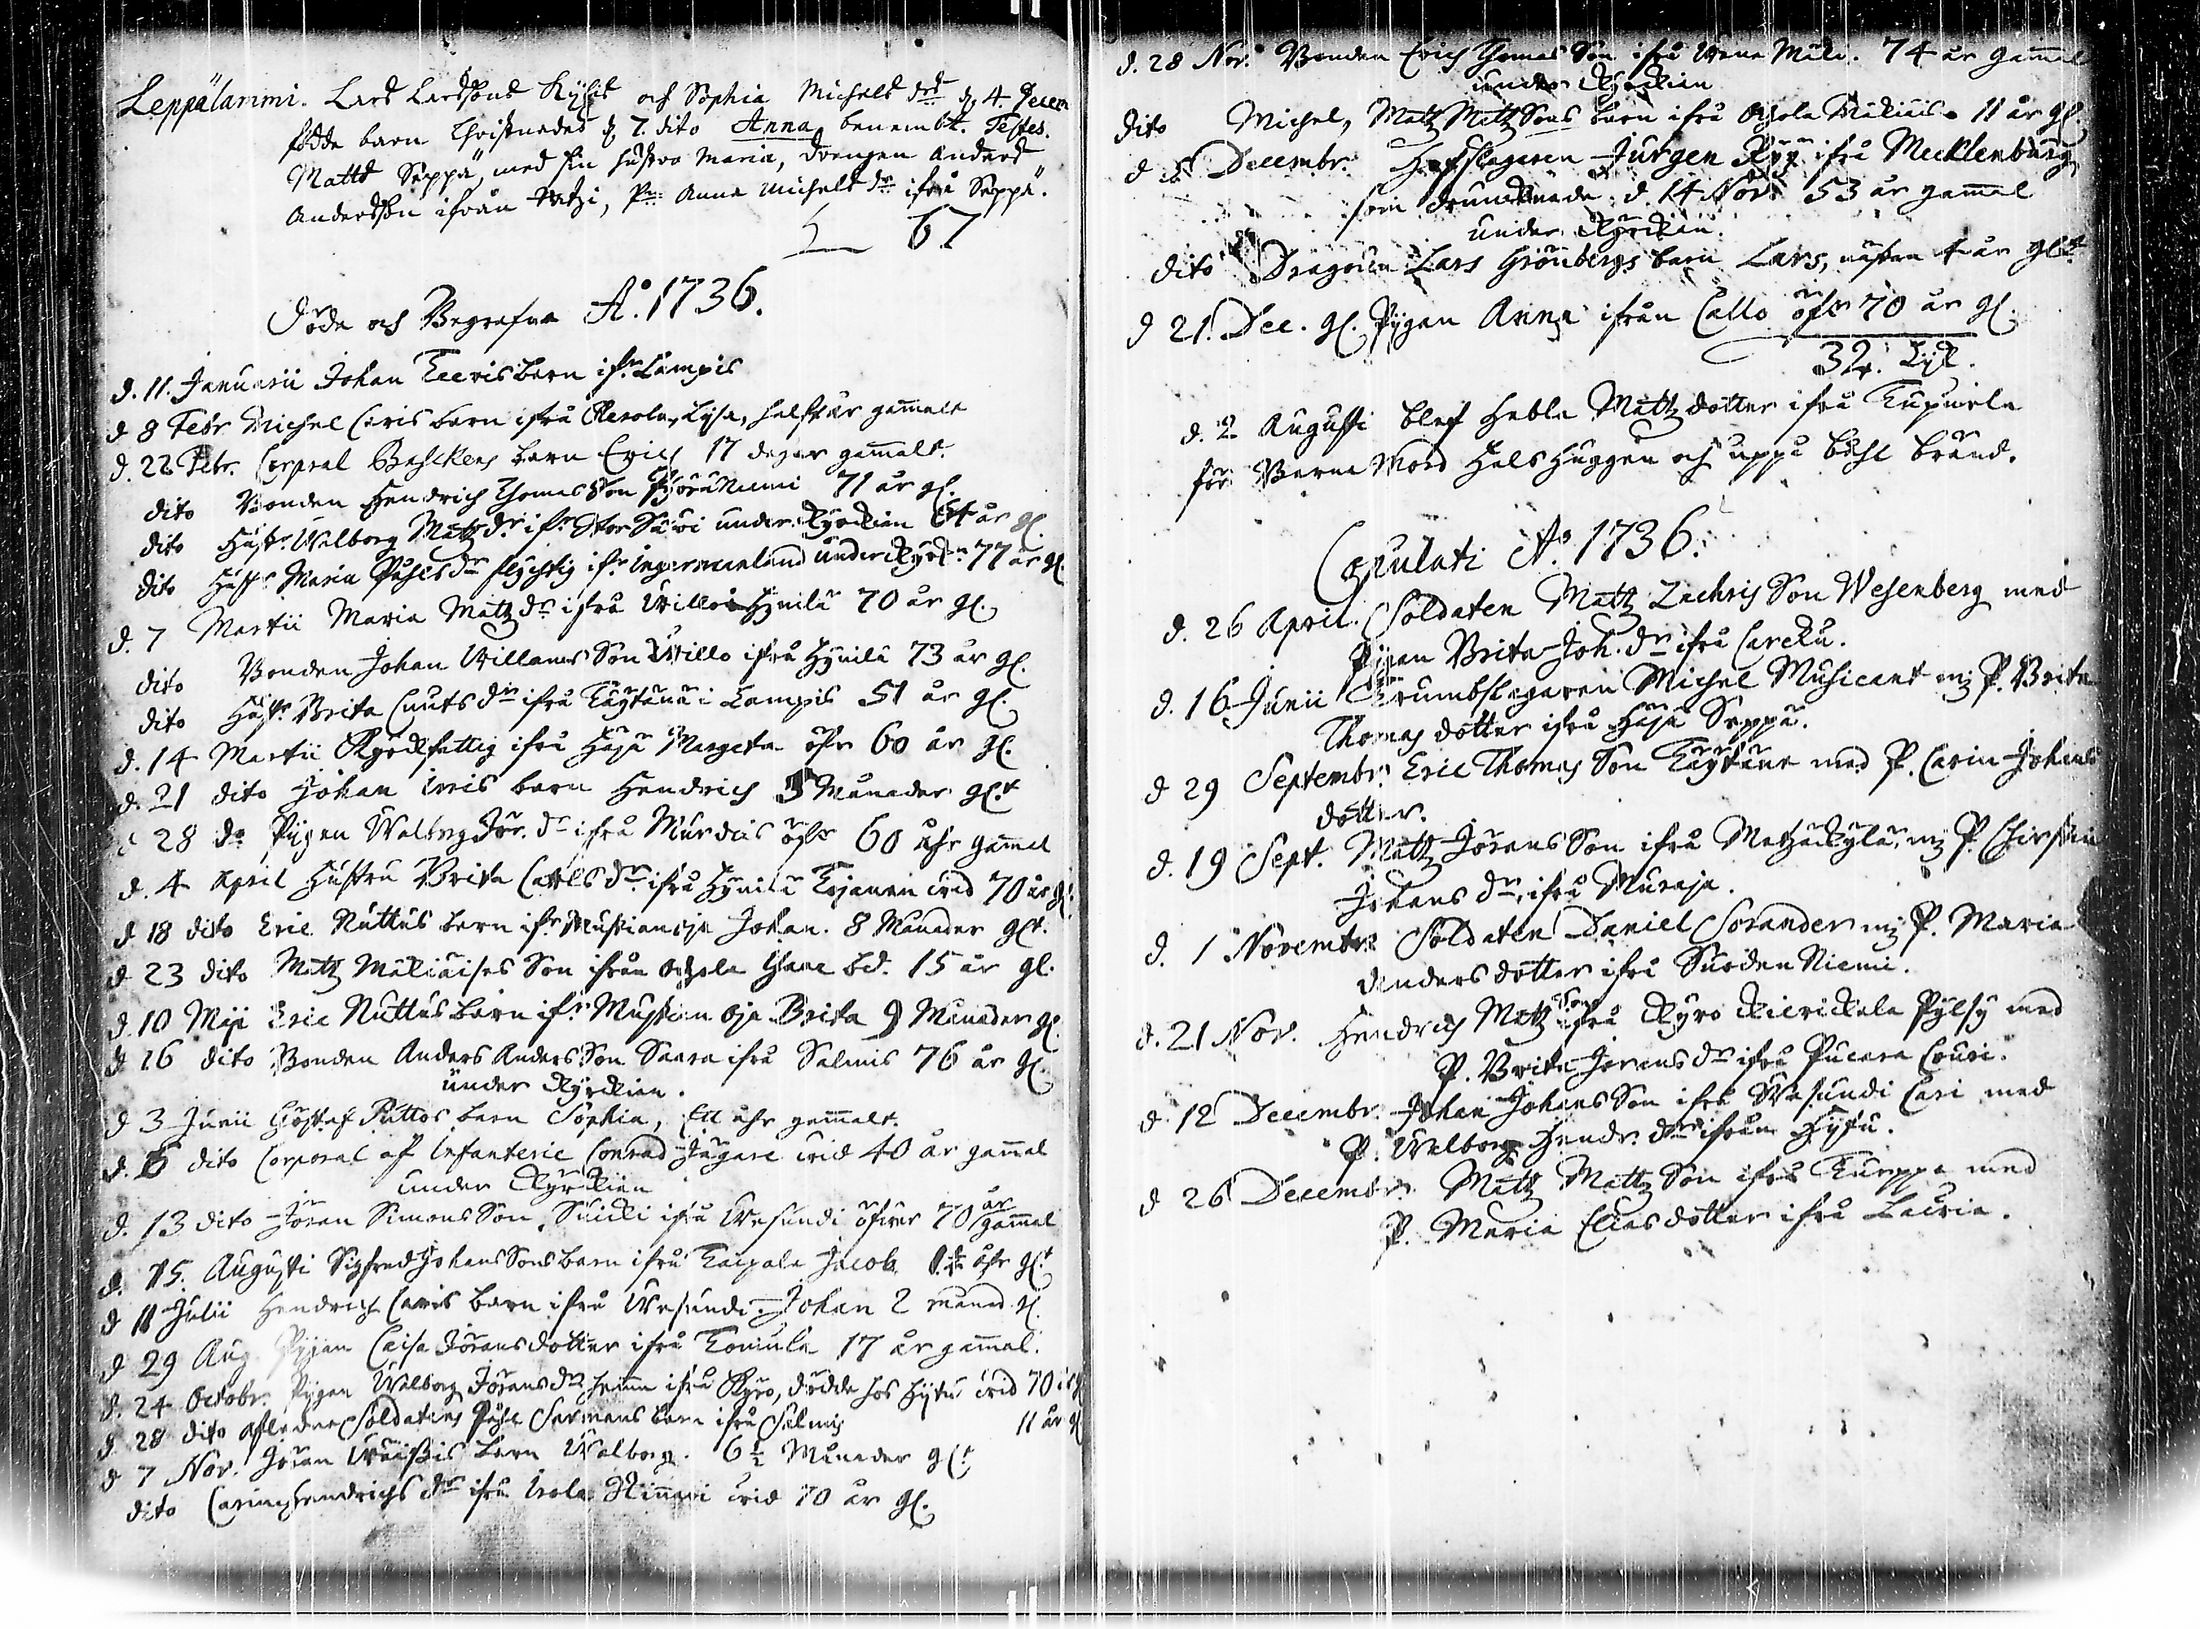 Leppälammi. Lars Larssons och Sophia Michels dr d. 4. Decem
födde barn Christnades d. 7. dito Anna benembt. Testes.
Matts Seppä, med sin hustro Maria, drengen Anders
Andersson ifrån, P. Anna Michels dr ifrå Seppä.
67
Döde och Begrafne A:o 1736.
d. 11. Januarii Johan barn ifr. Lampis
d 8 Febr Michel barn ifrå Lysa, halft år gammalt
d. 22 Febr. Corpral barn Erich 17 dagar gammalt.
dito Bonden Hendrich Thomas Son 71 år gl.
dito Hust. Walborg Matz dr ifr under Kyrkien 64 år gl.
dito Hust. Maria Påhls dr flychtig ifr Ingermanland under Kyrk. 77 år gl.
d. 7 Martii Maria Matz dr ifrå Willo Hynilä 70 år gl.
dito Bonden Johan Willams Son Willo ifrå Hynilä 73 år gl.
dito Hust. Brita Cnuts dr ifrå Käytänä i Lampis 51 år gl.
d. 14 Martii Kyrkfattig ifrå Margeta öfr 60 år gl.
d. 21 dito Johan barn Hendrich 3 Månader gl:t
d 28 do Pigan Walborg Jör. dr ifrå öfr 60 åhr gammal
d. 4 April Hustru Brita Carls dr ifrå Hynilä wid 70 år gl.
d 18 dito Eric Nuttus barn ifr Mustianoja Johan. 8 Månader glt.
d 23 dito Matz Mäkiäises Son ifrån 15 år gl.
d. 10 Maji Eric Nuttus barn ifr Mustian oja Brita 9 Månader gl.
d 16 dito Bonden Anders Anders Son Saara ifrå Salmis 76 år gl.
under Kyrkien.
d 3 Junii Gustaf Puttos barn Sophia, Ett åhr gammalt.
d. 6 dito Corporal af Infanterie Conrad Jägare wid 40 år gammal
under Kyrkien
d. 13 dito Jöran Simons Son ifrå Wesundi öfwer 70 år gammal
d. 15. Augusti Sigfred Johans Sons barn ifrå Kaipala Jacob åhr gl:t
d 11 Julii Hendrich barn ifrå Wesundi Johan 2 månad. gl.
d 29 Aug. Pigan Caisa Jörans dotter ifrå 17 år gammal.
d. 24 Octobr. Pigan Walborg Jörans dr ifrå Kyro, dödde hos Hytu wid 70 år gl
d 28 dito Soldatens Påhl barn ifrå Salmis 11 år gl
d 7 Nov. Jöran barn Walborg. 6 ½ Månader gl:t
dito Carin Hendrichs dr ifrå wid 70 år gl.
d. 28 Nov. Bonden Erich Thomas Son ifrå 74 år gammal
under Kyrkien
dito Michel, Matz Matz Sons barn ifrå Mäkiäis. 11 år gl
d 5 Decembr. Jürgen ifrå Mecklenburg
som drunknade d. 14 Nov. 53 år gammal
under Kyrkian.
dito Dragoun Lars Grönbergs barn Lars, nästan 4 år gl:t
d 21. Dec. gl. Pigan Anna ifrån Callo öfr 70 år gl.
32. Lijk.
d. 2 Augusti blef Hebla Matz dotter ifrå
för Barna Mord Halshuggen och uppå båhl bränd.
Copulati A:o 1736.
d. 26 April. Soldaten Matz Zachris Son Wesenberg med
Pigan Brita Joh. dr ifrå
d. 16 Junii Trumbslagaren Michel Musicant mz P. Brita
Thomas dotter ifrå Seppä.
d 29 Septembr. Eric Thomas Son Käytäne med P. Carin Johans
dotter.
d. 19 Sept. Matz Jörans Son ifrå mz P. Christin
Johans dr ifrå Muraja.
d. 1 Novembr. Soldaten Daniel Sorander mz P. Maria
Anders dotter ifrå Suoden Niemi.
d. 21 Nov. Hendrich Matz Son ifrå Kyro Kierickala Pylsy med
P. Brita Jörans dr ifrå
d. 12 Decembr. Johan Johans Son ifrå Wesundi Cari med
P. Walborg Hendr. dr ifrån Hytu.
d 26 Decembr. Matz Matz Son ifrå med
P. Maria Elias dotter ifrå Lauria.